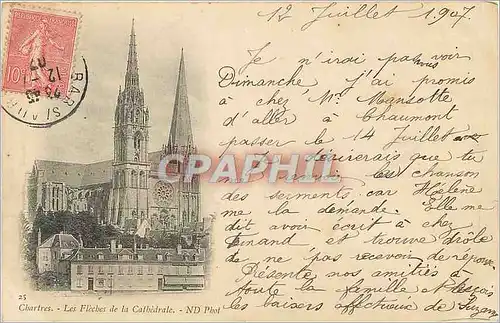 12 Juillet 1907
Je n'irai pas vous voir
Dimanche j'ai promis
à chez Mr Mansotte
d'aller à Chaumont
passer le 14 Juillet
désirerais que tu
chanson
des serments car Hélène
me la demande. Elle me
dit avoir écrit à chez
Finand et trouve drôle
de ne pas recevoir de réponse
Présente nos amitiés à
toute la famille et reçois
les baisers affectueux de Suzanne
10
BAR S/ AUBE
12
CPAPHIL
25
Chartres. - Les Flèches de la Cathédrale. - ND Phot